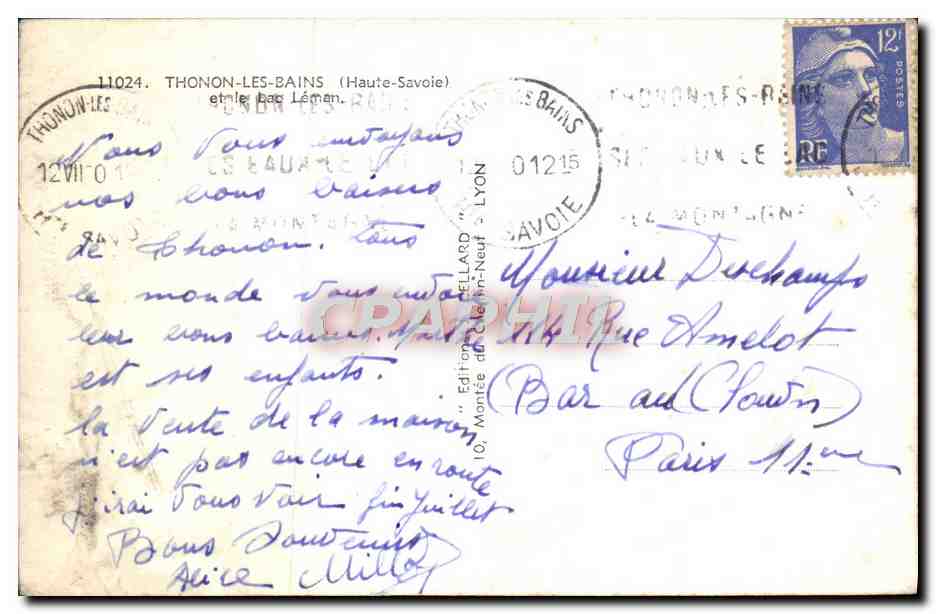 11024. THONON-LES-BAINS (Haute-Savoie)
et le Lac Léman.
THONON-LES-BAINS
12 VII 0
SAVOIE
THONON-LES-BAINS
SES EAUX-LE LAC
LA MONTAGNE
THONON LES BAINS
0 12 15
SAVOIE
THONON-LES-BAINS
SES EAUX-LE
LA MONTAGNE
12F
POSTES
RF
Nous vous envoyons
nos bons baisers
de Thonon. Tous
le monde vous envoi
leur bons baisers.
est ses enfants.
la vente de la maison
n'est pas encore en route
j'irai vous voir fin juillet
Bons Souvenirs
Alice
" Editions CELLARD "
10, Montée du Chemin-Neuf LYON
Monsieur Deschamps
114 Rue Amelot
(Bar au
Paris 11ème
CPARHIS